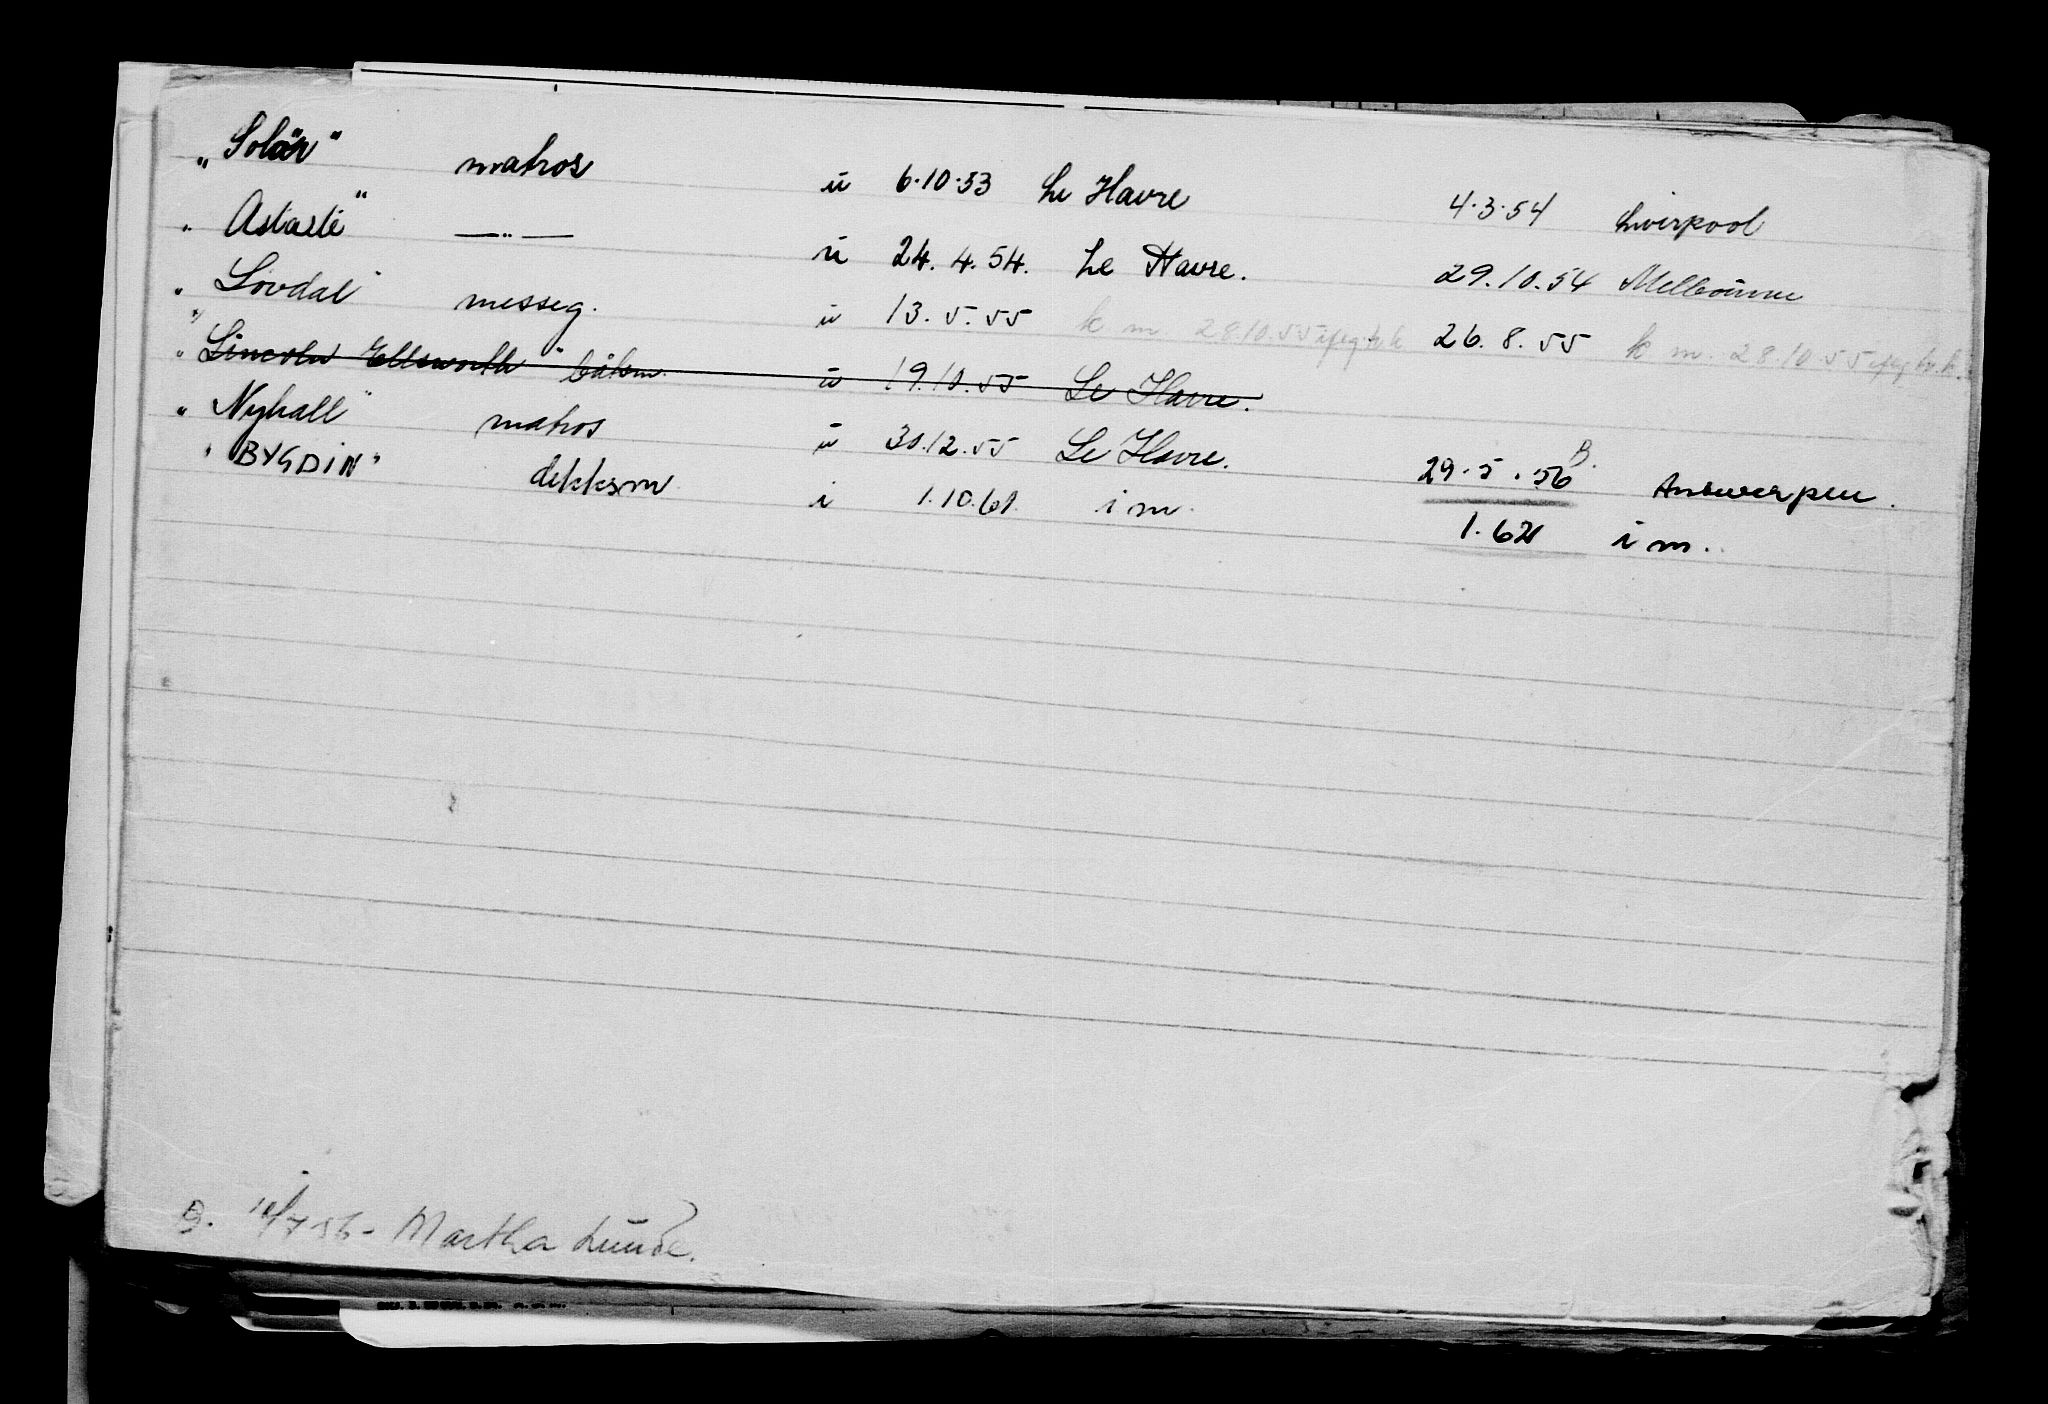 „Solør" matros u 6.10.53 Le Havre 4.3.54 Liverpool
„Astarte" —"— u 24.4.54. Le Havre. 29.10.54 Melbourne
„Lovdal" messeg. u 13.5.55 k m. 28.10.55 26.8.55 k m. 28.10.55
„Lincoln Ellsworth" båtsm. u 19.10.55 Le Havre.
„Nyhall" matros u 30.12.55 Le Havre. 29.5.56 B. Answerpen.
"BYGDIN" dekksm i 1.10.61. i m. 1.62 i m.
B. 10/7 56 - Martha Lunde.